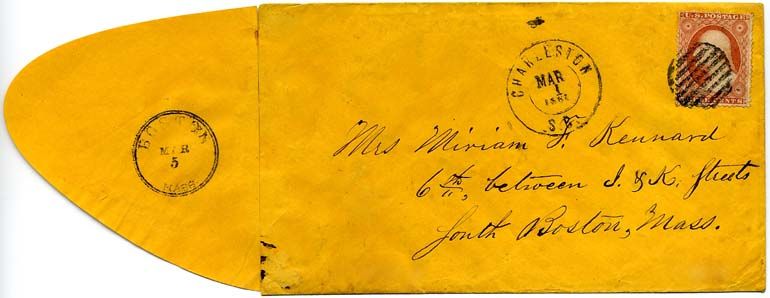 BOSTON
MAR
5
MASS
CHARLESTON
MAR
1
1861
S.C.
U.S. POSTAGE
CENTS
Mrs Miriam F. Kennard
6th, between I. & K. Streets
South Boston, Mass.